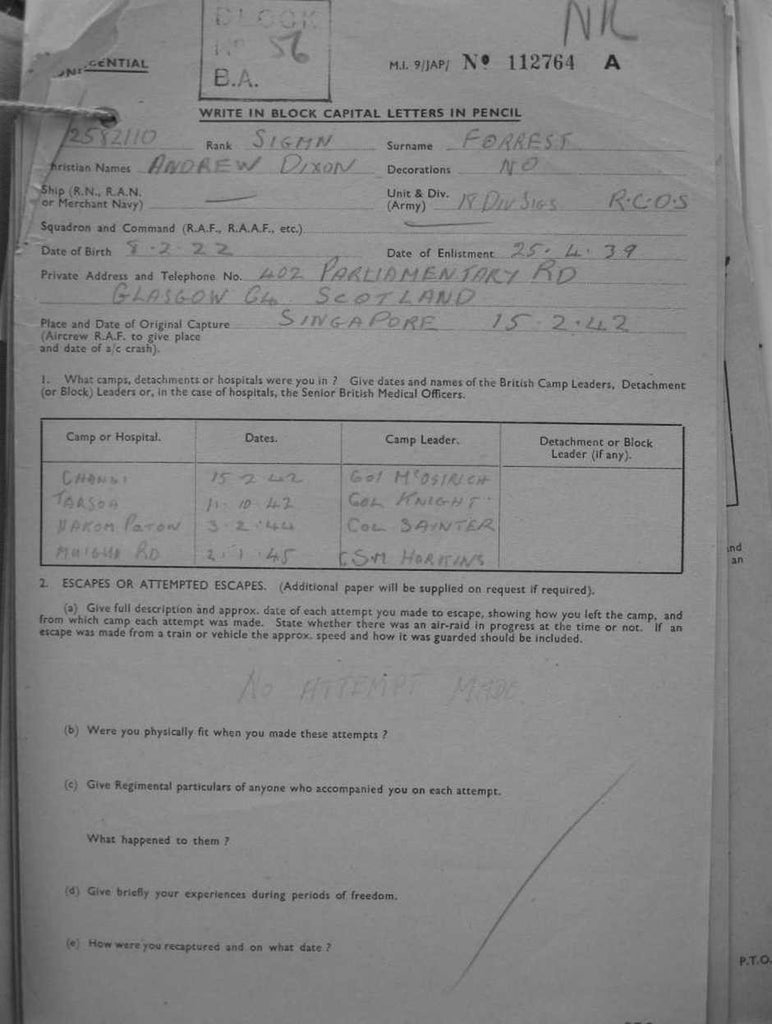 NR
BLOCK
No 56
B.A.
CONFIDENTIAL
M.I. 9/JAP/ No 112764 A
WRITE IN BLOCK CAPITAL LETTERS IN PENCIL
2582110 Rank SIGMN Surname FORREST
Christian Names ANDREW DIXON Decorations NO
Ship (R.N., R.A.N. or Merchant Navy) — Unit & Div. (Army) 18 DIV SIGS R.C.O.S
Squadron and Command (R.A.F., R.A.A.F., etc.)
Date of Birth 8.2.22 Date of Enlistment 25.4.39
Private Address and Telephone No. 402 PARLIAMENTARY RD
GLASGOW C4 SCOTLAND
Place and Date of Original Capture SINGAPORE 15.2.42
(Aircrew R.A.F. to give place
and date of a/c crash).
1. What camps, detachments or hospitals were you in ? Give dates and names of the British Camp Leaders, Detachment
(or Block) Leaders or, in the case of hospitals, the Senior British Medical Officers.
Camp or Hospital. Dates. Camp Leader. Detachment or Block
Leader (if any).
CHANGI 15 2 42 Col
TARSOA 11.10.42 COL KNIGHT
NAKOM PATON 3.2.44 COL SAINTER
RD 2.1.45 CSM
2. ESCAPES OR ATTEMPTED ESCAPES. (Additional paper will be supplied on request if required).
(a) Give full description and approx. date of each attempt you made to escape, showing how you left the camp, and
from which camp each attempt was made. State whether there was an air-raid in progress at the time or not. If an
escape was made from a train or vehicle the approx. speed and how it was guarded should be included.
NO ATTEMPT MADE
(b) Were you physically fit when you made these attempts ?
(c) Give Regimental particulars of anyone who accompanied you on each attempt.
What happened to them ?
(d) Give briefly your experiences during periods of freedom.
(e) How were you recaptured and on what date ?
nd
an
P.T.O.